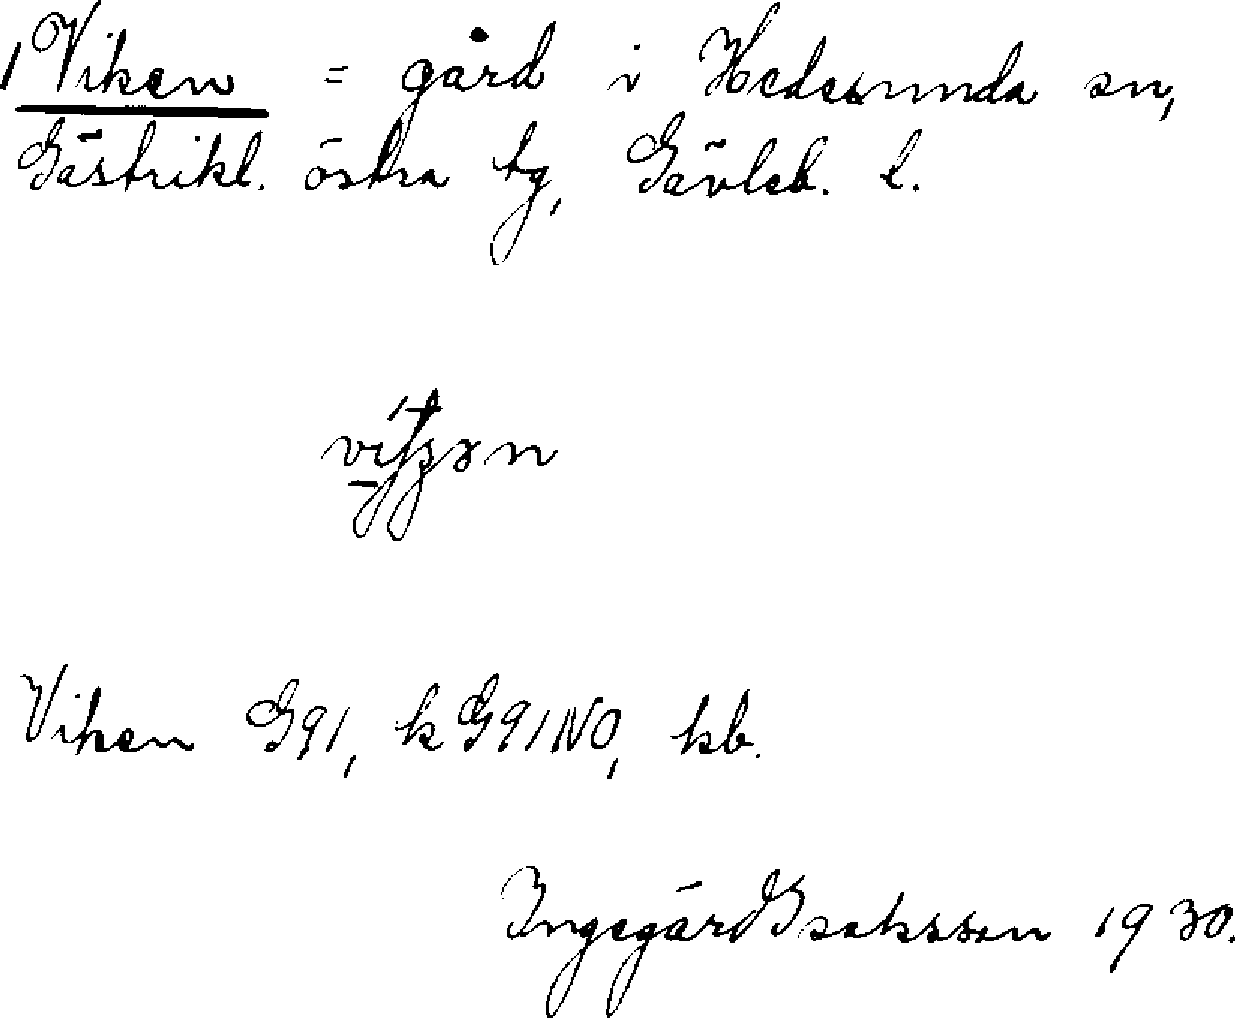 Viken = gård i Hedesunda sn,
Gästrikl. östra tg, Gävleb. l.
Viken G91, k G91NO, kb.
Ingegärd Isaksson 1930.